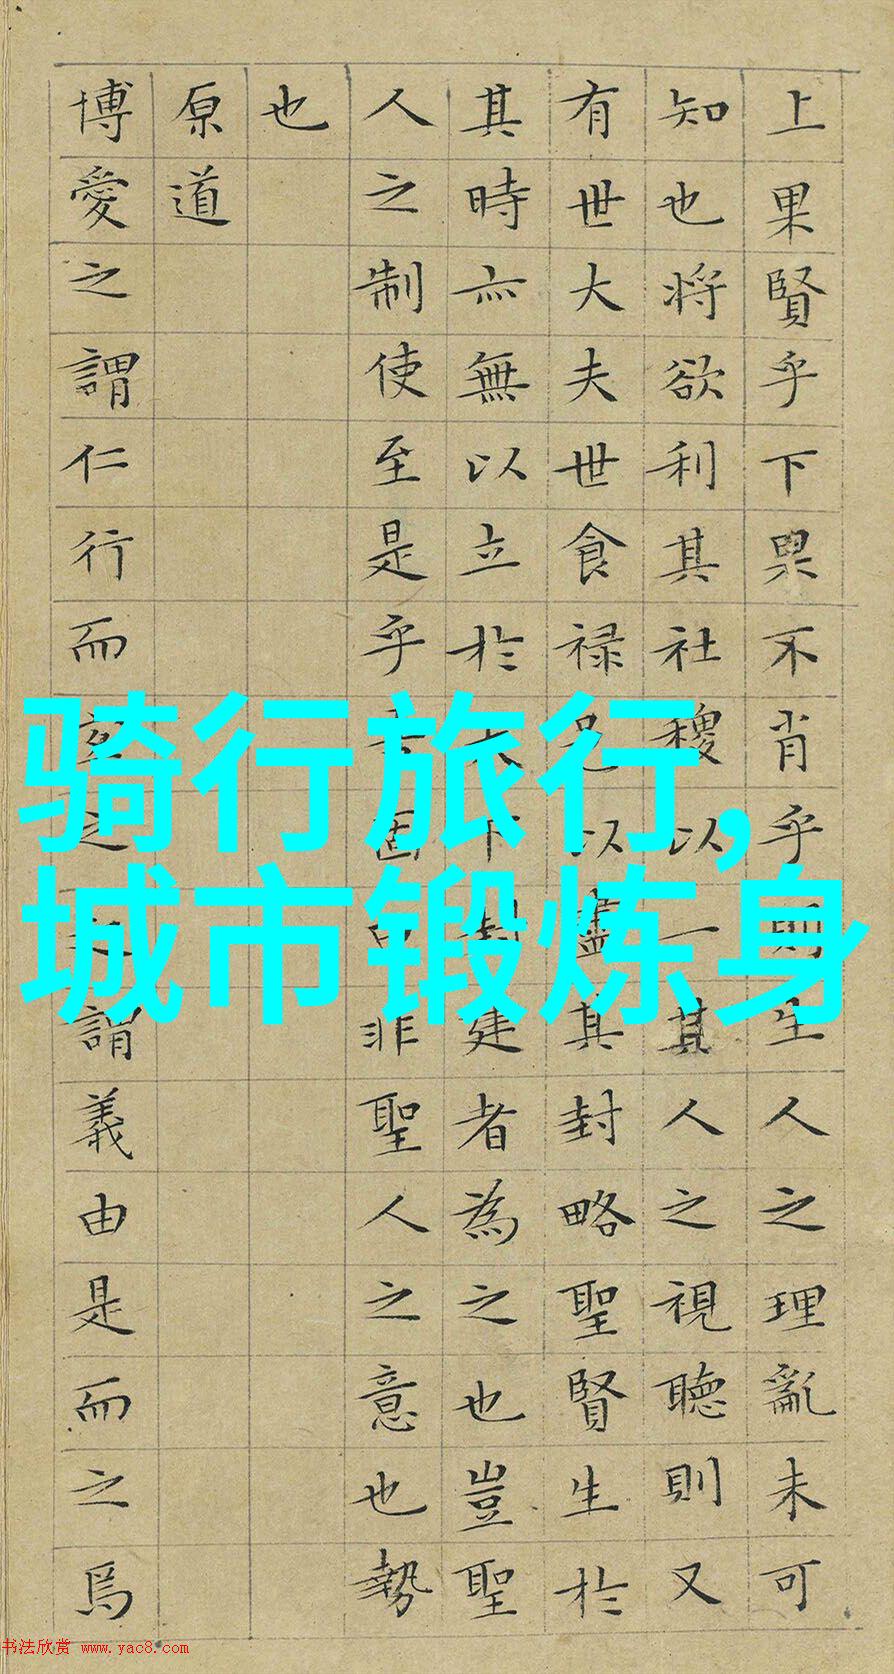 上果賢乎下果不肖乎則生人之理亂未可
知也将欲利其社稷以一其人之視聽則又
有世大夫世食禄邑以盡其封略聖賢生於
其時亦無以立於天下封建者為之也豈聖
人之制使至是乎吾固曰非聖人之意也勢
也
原道
博愛之謂仁行而宜之之謂義由是而之焉
骑行旅行,
城市锻炼身
书法欣赏 www.yac8.com